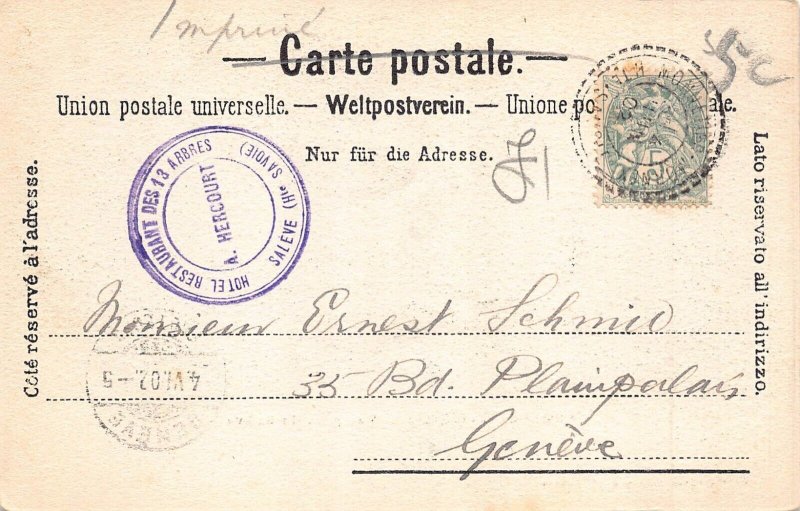 Imprimé
Carte postale.
Union postale universelle. — Weltpostverein. — Unione po ale.
Nur für die Adresse.
Côté réservé à l'adresse.
Lato riservato all'indirizzo.
HOTEL RESTAURANT DES 13 ARBRES
SALÈVE (Hte SAVOIE)
A. HERCOURT
Monsieur Ernest Schmid
35 Bd. Plainpalais
Genève
4.VI.02.-5